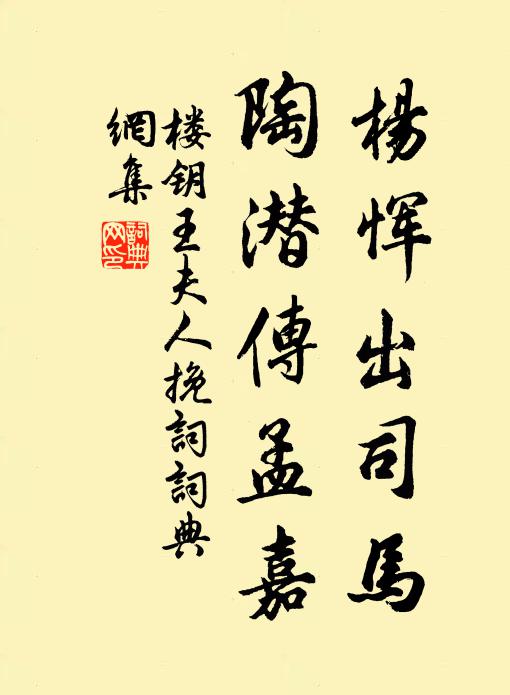 楊恽出司馬
陶潜傳孟嘉
楼钥王夫人挽詞詞典
網集
詞典
网印